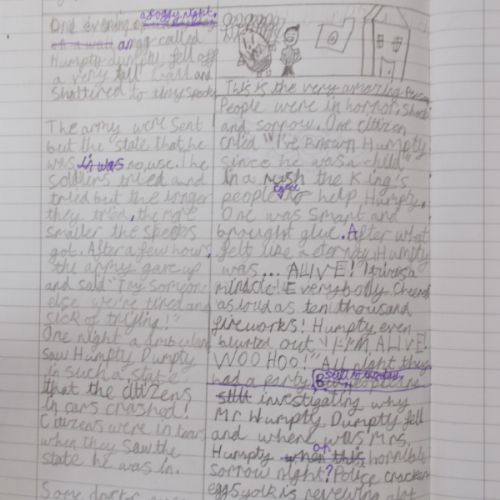 One evening a foggy night,
an egg called
Humpty dumpty fell off
a very tall wall and
shattered to tiny specks
The army were sent
but the state that he
was in was no use. The
soldiers tried and
tried but the longer
they tried, the more
smaller the specks
got. After a few hours,
the army gave up
and said "Try someone
else we're tired and
sick of trying!"
One night a ambulance
saw Humpty Dumpty
in such a state
that the citizens
in cars crashed!
Citizens were in tears
when they saw the
state he was in.
Some
This is the very amazing
People were in horror, shock
and sorrow. One citizen
cried "I've known Humpty
since he was a child"
In a rush the King's
people to help Humpty.
One was smart and
brought glue. After what
felt like a eternity, Humpty
was... ALIVE! It was a
miracle! Everybody cheered
as loud as ten thousand
fireworks! Humpty even
blurted out "I'M ALIVE!
WOO HOO!" All night they
had a party.
still investigating why
Mr Humpty Dumpty fell
and where was Mrs.
Humpty when this on horrible
sorrow night? Police
eggs yolk is